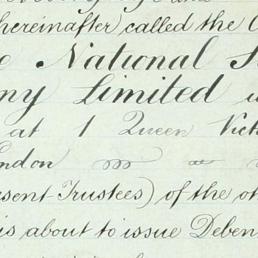 hereinafter called the
National
ny Limited
at 1 Queen Vict
ondon
esent Trustees) of the ot
is about to issue Deben